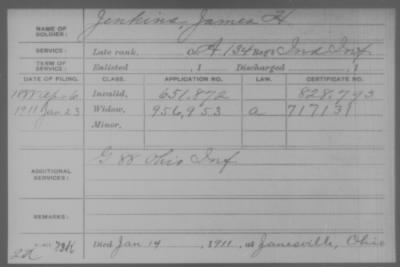 NAME OF SOLDIER: Jenkins, James H.
SERVICE: Late rank, Co. A 134 Reg't Ind Inf
TERM OF SERVICE: Enlisted , 1 Discharged , 1
DATE OF FILING. CLASS. APPLICATION NO. LAW. CERTIFICATE NO.
1888 Apr 6 Invalid, 651,872 828,793
1911 Jan 23 Widow, 956,953 a 717131
Minor,
ADDITIONAL SERVICES: G 88 Ohio Inf
REMARKS:
Died Jan 14, 1911, at Zanesville, Ohio